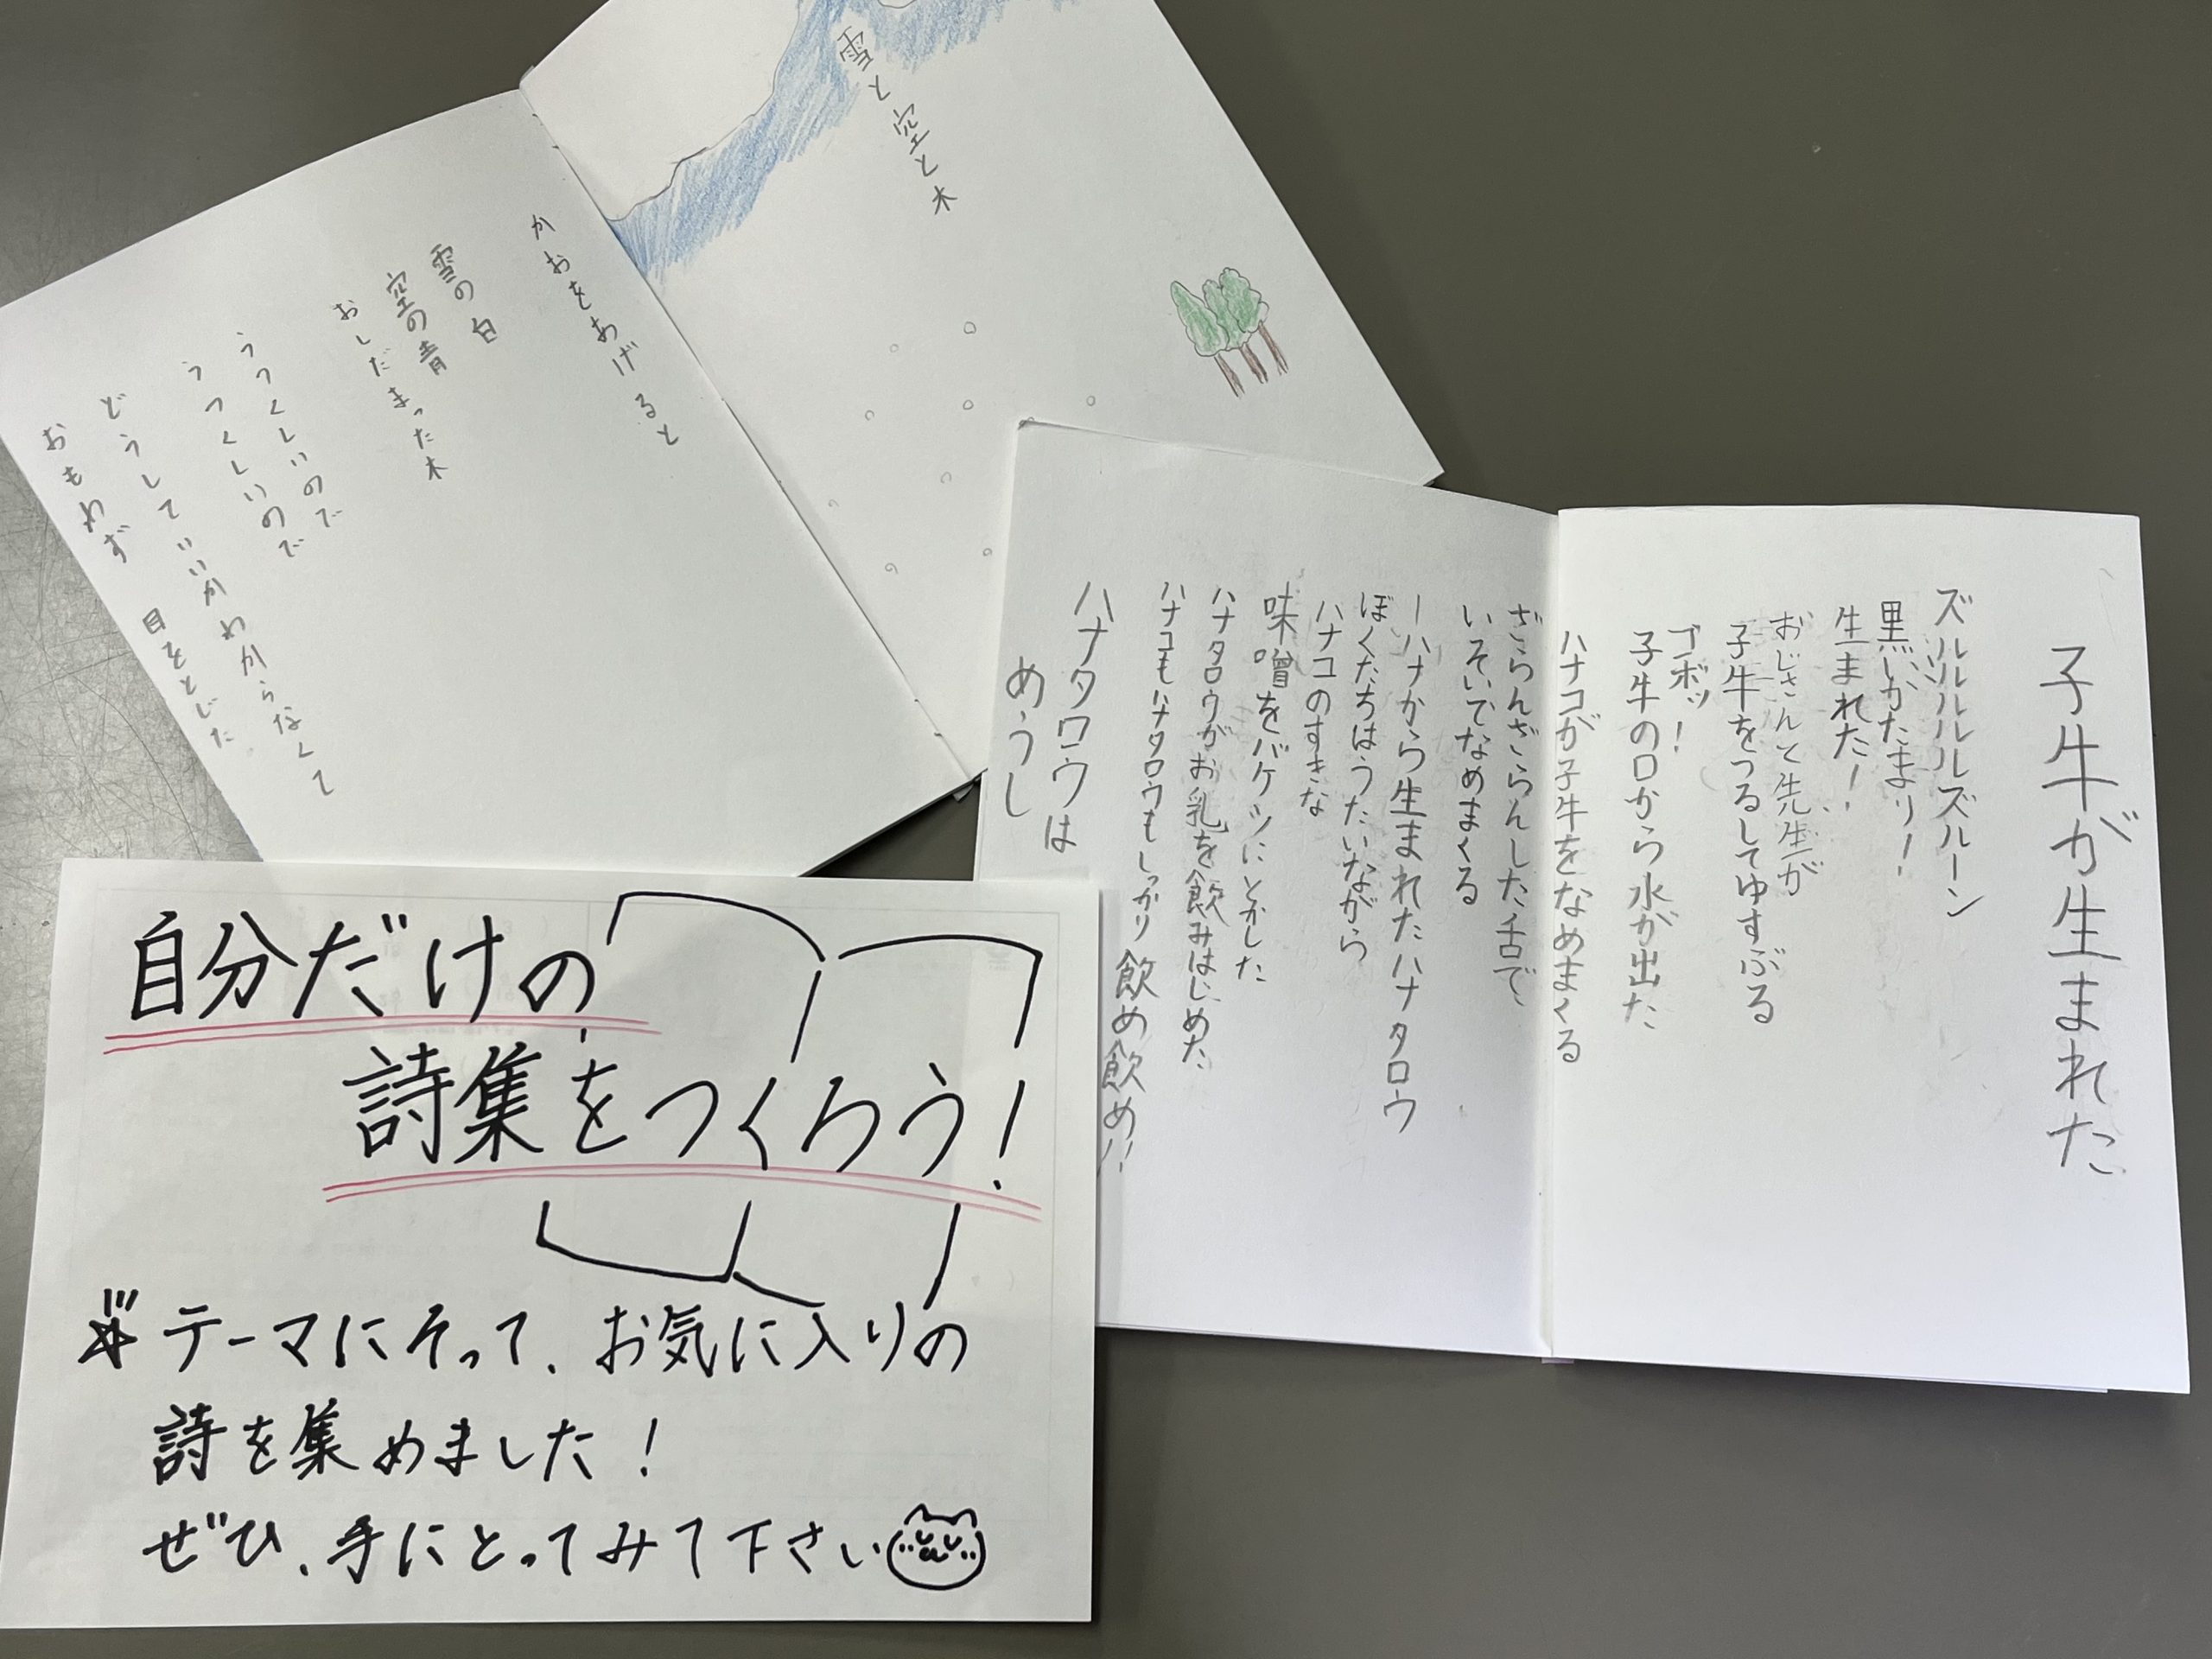 雪と空と木
かおをあげると
雪の白
空の青
おしだまった木
うつくしいので
うつくしいので
どうしていいかわからなくて
おもわず 目をとじた
子牛が生まれた
ズルルルルズルーン
黒いかたまり！
生まれた！
おじさんと先生が
子牛をつるしてゆすぶる
ゴボッ！
子牛の口から水が出た
ハナコが子牛をなめまくる
ざらんざらんした舌で
いそいでなめまくる
ーハナから生まれたハナタロウ
ぼくたちはうたいながら
ハナコのすきな
味噌をバケツにとかした
ハナタロウがお乳を飲みはじめた
ハナコもハナタロウもしっかり飲め飲め!!
ハナタロウは
めうし
自分だけの
詩集をつくろう！
テーマにそって、お気に入りの
詩を集めました！
ぜひ、手にとってみて下さい